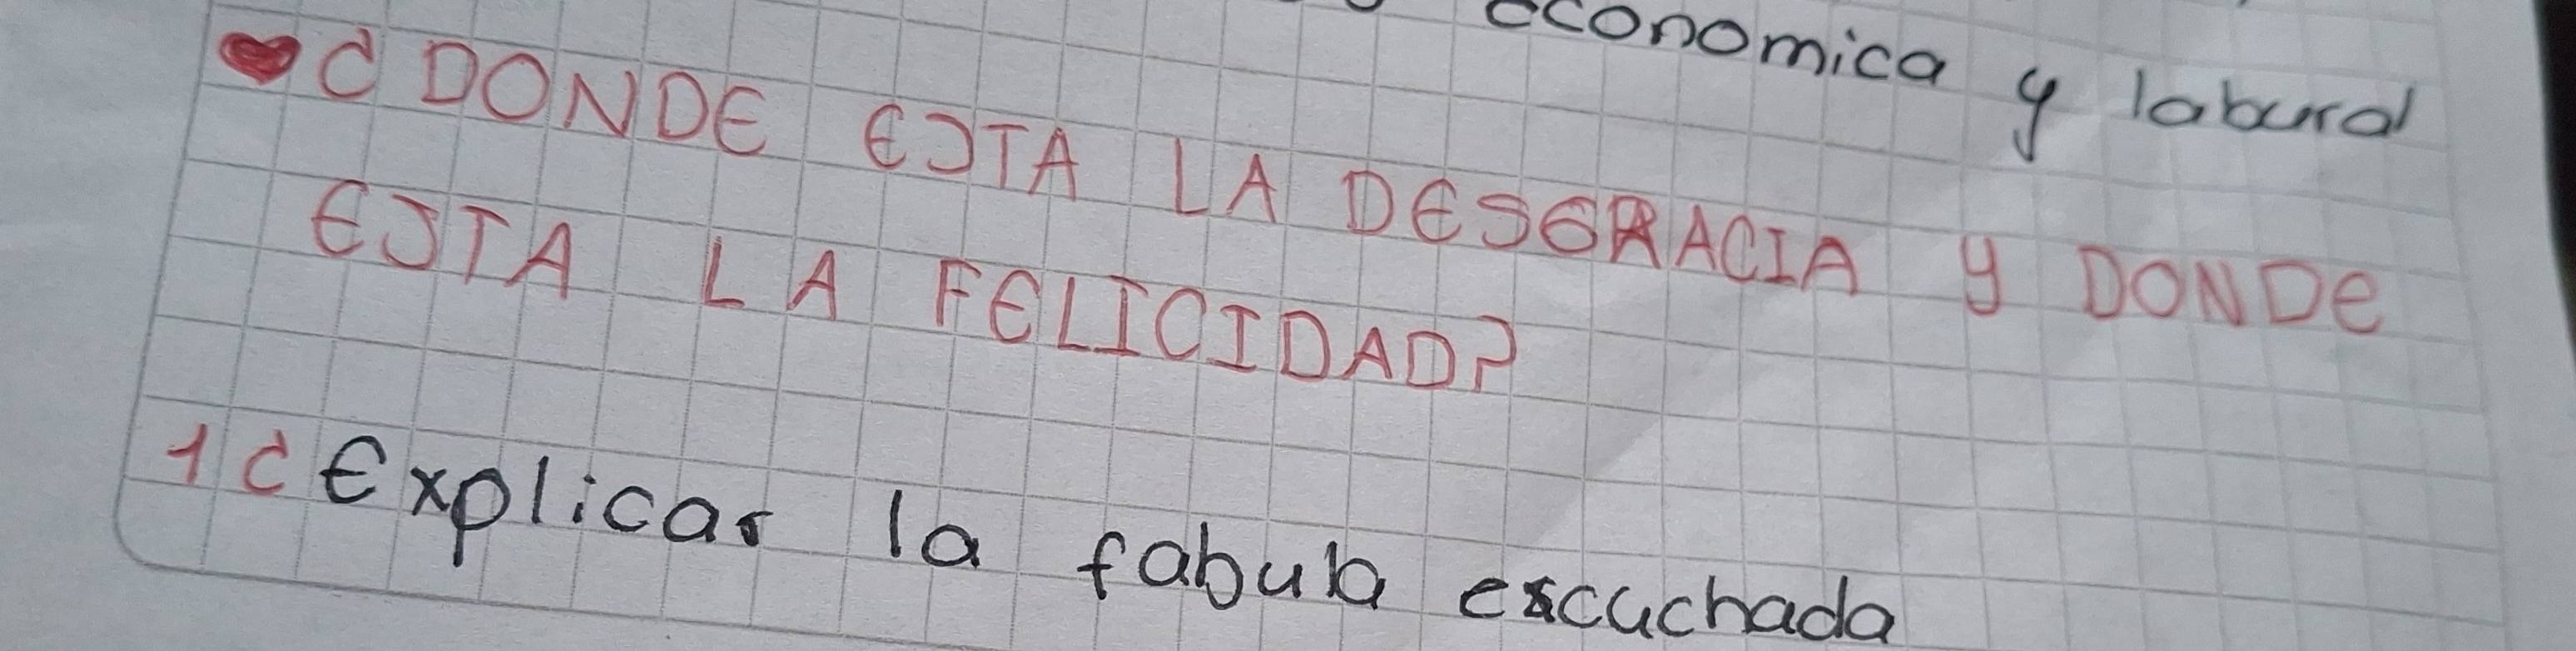 economica y laboral
¿DONDE ESTA LA DESGRACIA Y DONDE
ESTA LA FELICIDAD?
1 ¿Explicar la fabula escuchada